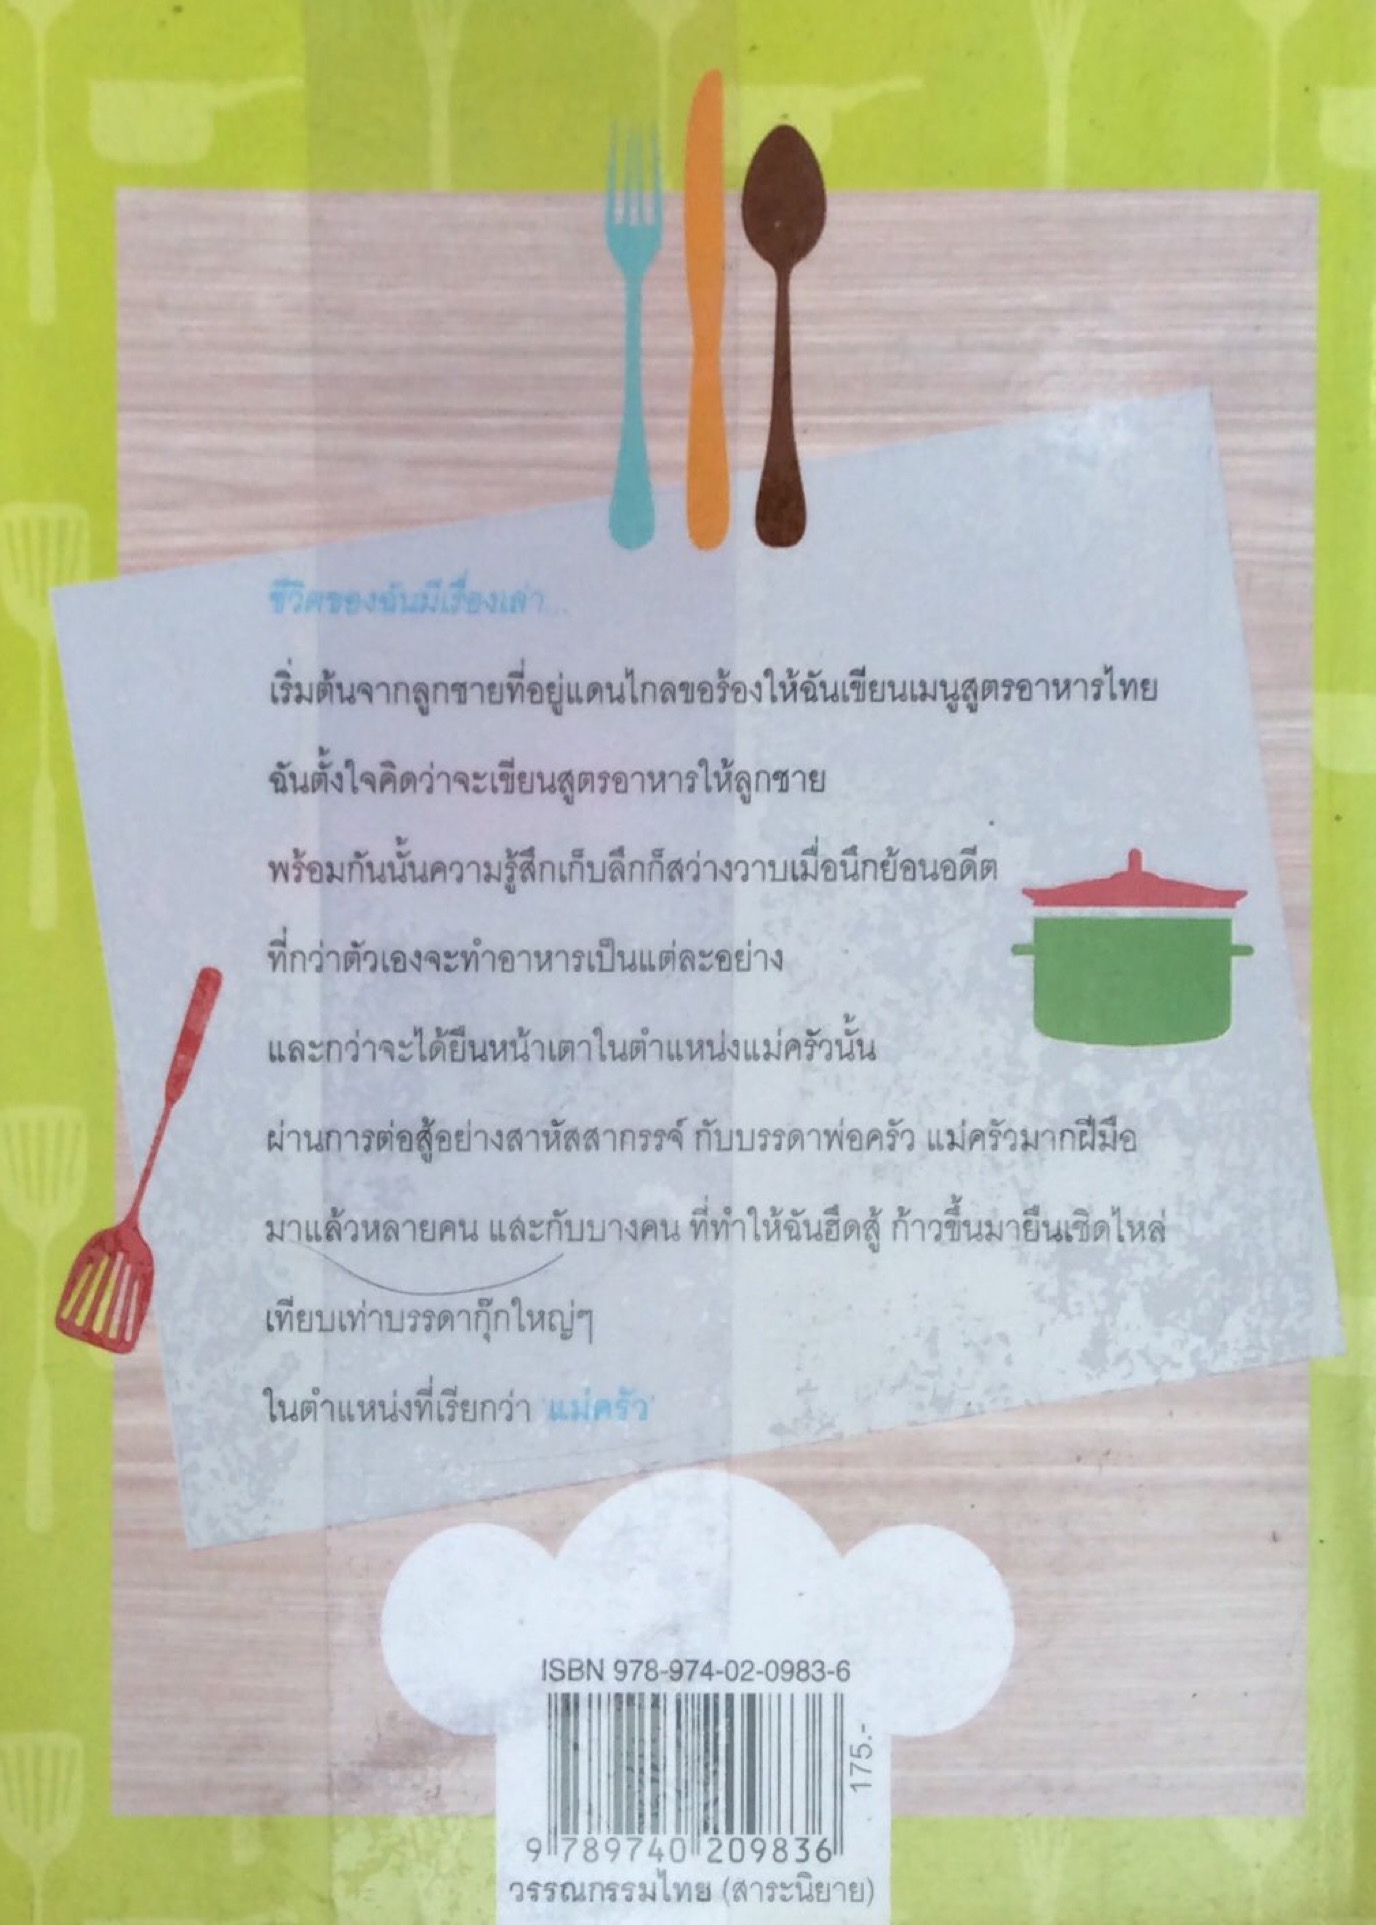 ชีวิตของฉันมีเรื่องเล่า...
เริ่มต้นจากลูกชายที่อยู่แดนไกลขอร้องให้ฉันเขียนเมนูสูตรอาหารไทย
ฉันตั้งใจคิดว่าจะเขียนสูตรอาหารให้ลูกชาย
พร้อมกันนั้นความรู้สึกเก็บลึกก็สว่างวาบเมื่อนึกย้อนอดีต
ที่กว่าตัวเองจะทำอาหารเป็นแต่ละอย่าง
และกว่าจะได้ยืนหน้าเตาในตำแหน่งแม่ครัวนั้น
ผ่านการต่อสู้อย่างสาหัสสากรรจ์ กับบรรดาพ่อครัว แม่ครัวมากฝีมือ
มาแล้วหลายคน และกับบางคน ที่ทำให้ฉันฮึดสู้ ก้าวขึ้นมายืนเชิดไหล่
เทียบเท่าบรรดากุ๊กใหญ่ๆ
ในตำแหน่งที่เรียกว่า 'แม่ครัว'
ISBN 978-974-02-0983-6
175.-
9 789740 209836
วรรณกรรมไทย (สาระนิยาย)